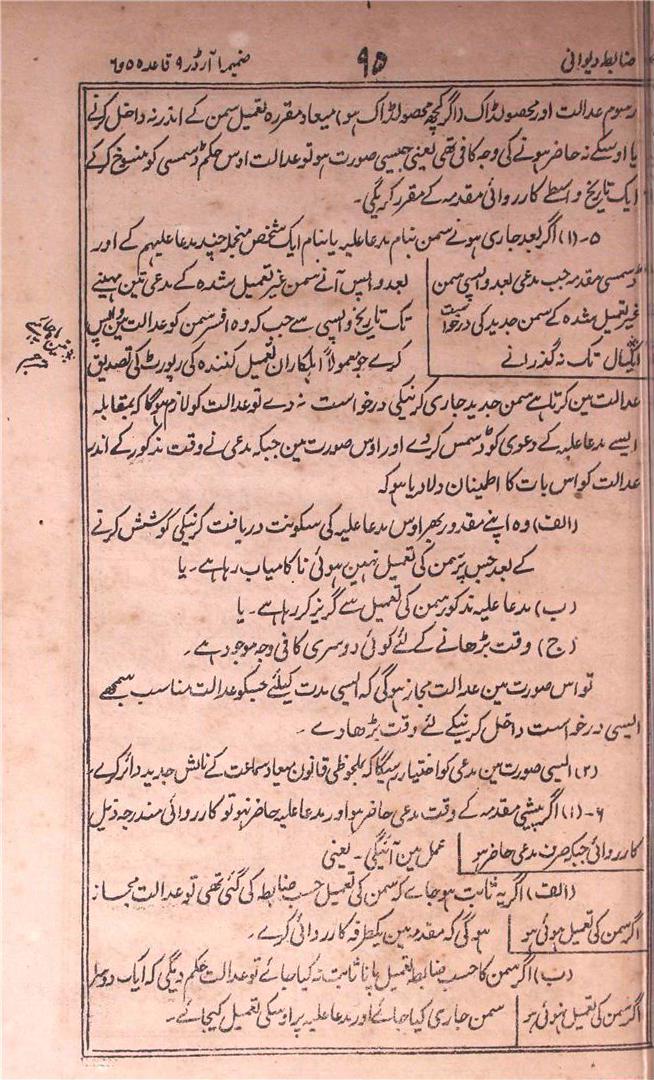 ضابطہ دیوانی
۹۵
ضمیمہ ا آرڈر ۹ قاعدہ ۵ و ۶
رسوم عدالت اور محصول ڈاک (اگر کچھ محصول ڈاک ہو) میعاد مقررہ تعمیل سمن کے اندر نہ داخل کرنے
یا اوسکے نہ حاضر ہونے کی وجہ کافی تھی یعنی جیسی صورت ہو تو عدالت اوس حکم ڈسمسی کو منسوخ کر کے
ایک تاریخ واسطے کارروائی مقدمہ کے مقرر کریگی۔
۵۔ (۱) اگر بعد جاری ہونے سمن بنام مدعا علیہ یا بنام ایک شخص منجملہ چند مدعا علیہم کے اور
ڈسمسی مقدمہ جب مدعی بعد واپسی سمن
غیر تعمیل شدہ کے سمن جدید کی درخواست
ایکسال تک نہ گذرانے
بعد واپس آنے سمن غیر تعمیل شدہ کے مدعی تین مہینے
تک تاریخ واپسی سے جب کہ وہ افسر سمن کو عدالت مین واپس
کرے جو معمولاً اہلکاران تعمیل کنندہ کی رپورٹ کی تصدیق
عدالت مین کرتا ہے سمن جدید جاری کرنیکی درخواست نہ دے تو عدالت کو لازم ہوگا کہ بمقابلہ
ایسے مدعا علیہ کے دعوی کو ڈسمس کر دے اور اوس صورت مین جبکہ مدعی نے وقت مذکور کے اندر
عدالت کو اس بات کا اطینان دلا دیا ہو کہ
(الف) وہ اپنے مقدور بھر اوس مدعا علیہ کی سکونت دریافت کرنیکی کوشش کرتے
کے بعد جس پر سمن کی تعمیل نہین ہوئی ناکامیاب رہا ہے۔ یا
(ب) مدعا علیہ مذکور سمن کی تعمیل سے گریز کر رہا ہے۔ یا
(ج) وقت بڑھانے کے لئے کوئی دوسری کافی وجہ موجود ہے۔
تو اس صورت مین عدالت مجاز ہوگی کہ ایسی مدت کیلئے جسکو عدالت مناسب سمجھے
ایسی درخواست داخل کرنیکے لئے وقت بڑھا دے۔
(۲) ایسی صورت مین مدعی کو اختیار رہیگا کہ بلحوظی قانون میعاد سماعت کے نالش جدید دائر کرے۔
۶۔ (۱) اگر پیشی مقدمہ کے وقت مدعی حاضر ہو اور مدعا علیہ حاضر نہو تو کارروائی مندرجہ ذیل
کارروائی جبکہ صرف مدعی حاضر ہو
عمل مین آئیگی۔ یعنی
(الف) اگر یہ ثابت ہو جاے کہ سمن کی تعمیل حسب ضابطہ کی گئی تھی تو عدالت مجاز
اگر سمن کی تعمیل ہوئی ہو
ہوگی کہ مقدمہ مین یکطرفہ کارروائی کرے۔
(ب) اگر سمن کا حسب ضابطہ تعمیل پانا ثابت نہ کیا جائے تو عدالت حکم دیگی کہ ایک دوسرا
اگر سمن کی تعمیل نہوئی ہو
سمن جاری کیا جائے اور مدعا علیہ پر اوسکی تعمیل کیجائے۔